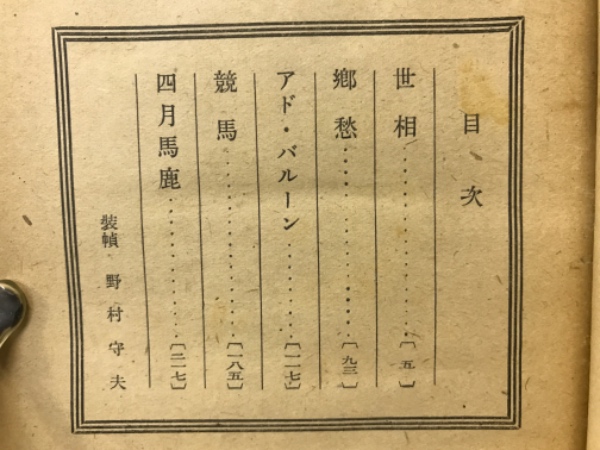 目次
世相……………〔五〕
郷愁……………〔九三〕
アド・バルーン………〔一一七〕
競馬……………〔一八五〕
四月馬鹿…………〔二一七〕
装幀 野村守夫